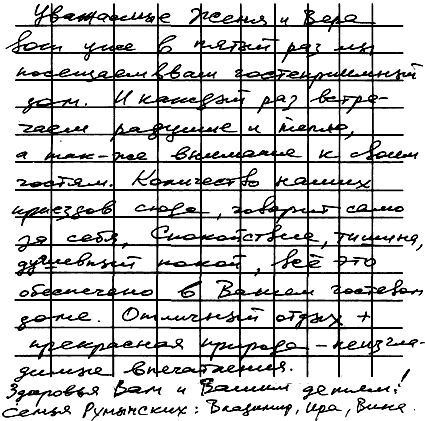 Уважаемые Женя и Вера
вот уже в пятый раз мы
посещаем ваш гостеприимный
дом. И каждый раз встре-
чаем радушие и тепло,
а так-же внимание к своим
гостям. Количество наших
приездов сюда, говорит само
за себя, Спокойствие, тишина,
душевный покой, всё это
обеспечено в Вашем гостевом
доме. Отличный отдых +
прекрасная природа - неизгла-
димые впечатления.
Здоровья Вам и Вашим детям!
Семья Румынских: Владимир, Ира,